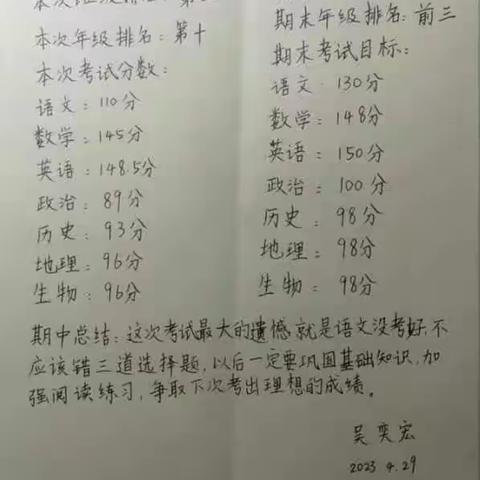 本次年级排名：第十
本次考试分数：
语文：110分
数学：145分
英语：148.5分
政治：89分
历史：93分
地理：96分
生物：96分
期末年级排名：前三
期末考试目标：
语文：130分
数学：148分
英语：150分
政治：100分
历史：98分
地理：98分
生物：98分
期中总结：这次考试最大的遗憾就是语文没考好,不
应该错三道选择题，以后一定要巩固基础知识,加
强阅读练习，争取下次考出理想的成绩。
吴奕宏
2023 4.29